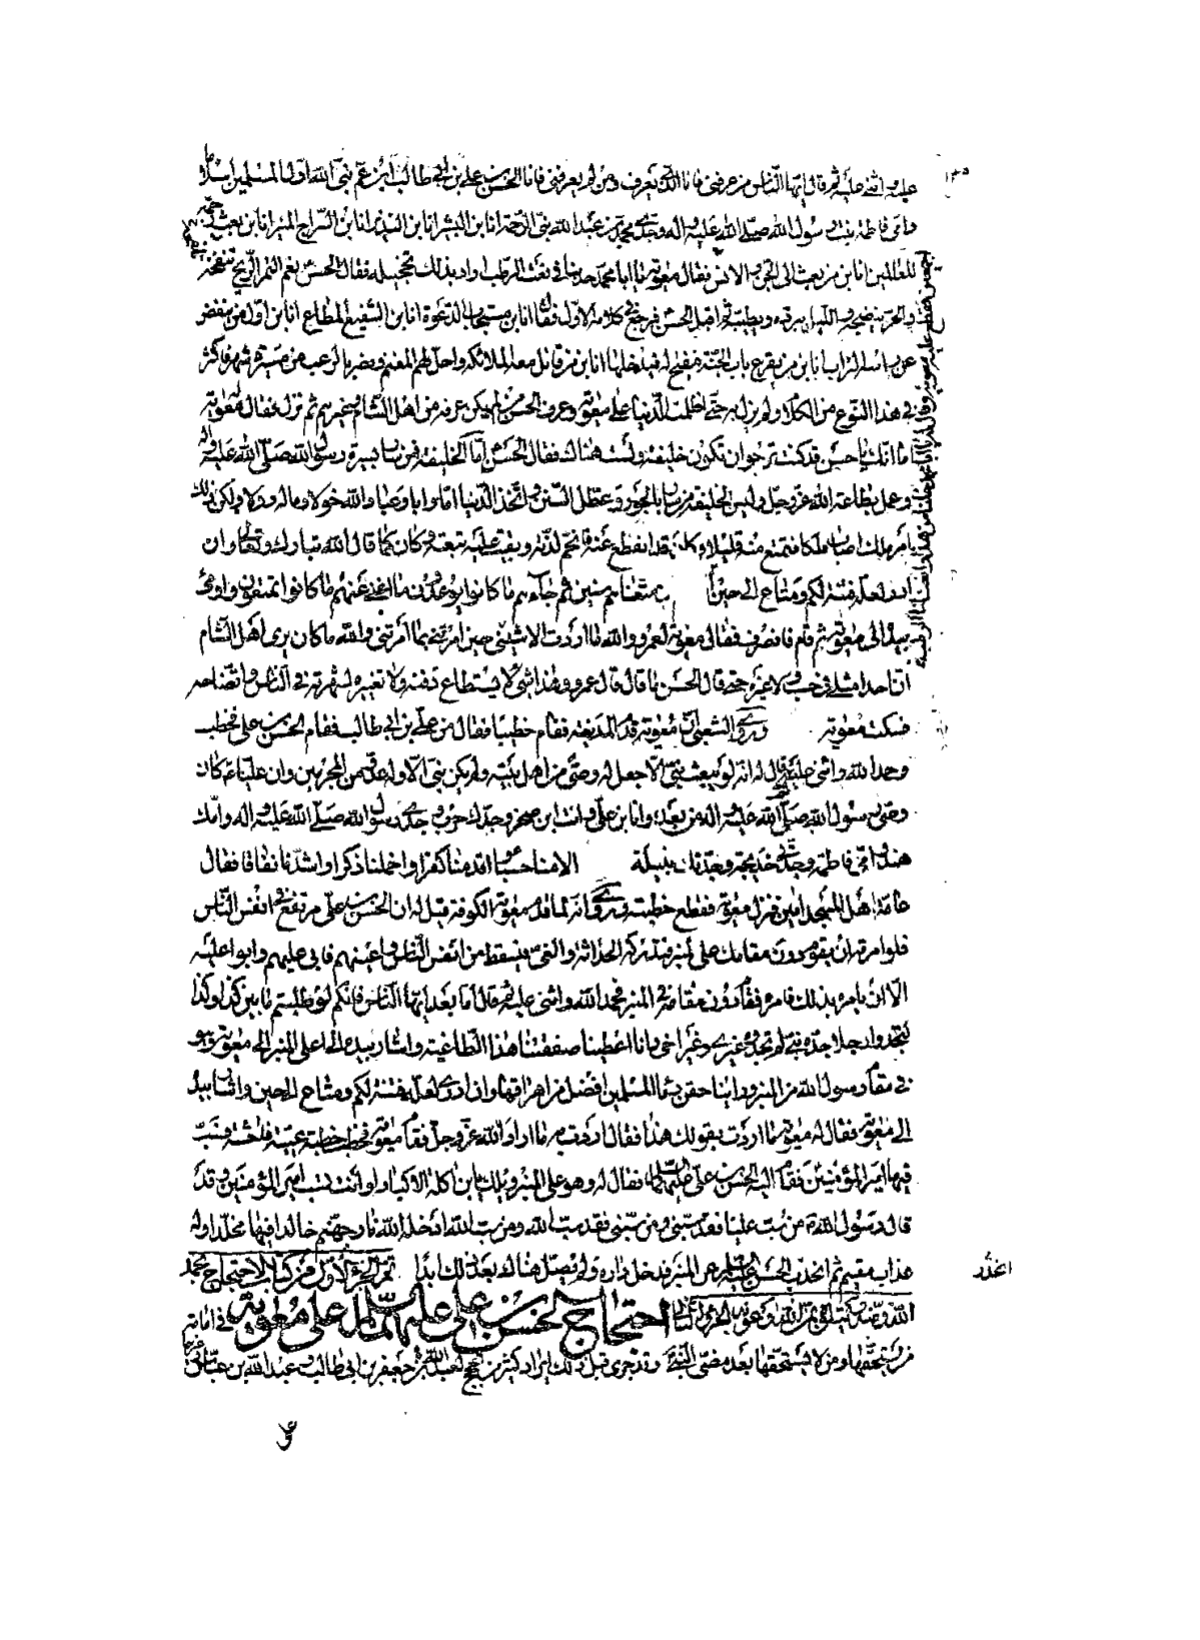 عليه اثنى عليه ثم قال ايها الناس من عرفنى فانا الذى يعرف ومن لم يعرفنى فانا الحسن بن على بن ابى طالب ابن عم نبى الله اول المسلمين اسلاما
وامى فاطمة بنت رسول الله صلى الله عليه واله وجدى محمد بن عبد الله نبى الرحمة انا ابن البشير انا ابن النذير انا ابن السراج المنير انا ابن من بعث رحمة
للعالمين انا ابن من بعث الى الجن والانس فقال معوية يا ابا محمد حدثنا فى نعت الرطب اراد بذلك تخجيله فقال الحسن نعم التمر الريح تنفخه
والحر ينضجه والليل يبرده ويطيبه ثم اقبل الحسن فرجع فى كلامه الاول فقال انا ابن مستجاب الدعوة انا ابن الشفيع المطاع انا ابن اول من ينفض
عن راسه التراب انا ابن من يقرع باب الجنة فيفتح له فيدخلها انا ابن من قاتل معه الملائكة واحل لهم المغنم ونصر بالرعب من مسيرة شهر فاكثر
فى هذا النوع من الكلام ولم يزل به حتى اظلمت الدنيا على معوية وعرف الحسن من لم يكن عرفه من اهل الشام وغيرهم ثم نزل فقال له معوية
اما انك يا حسن قد كنت ترجوا ان تكون خليفة ولست هناك فقال الحسن اما الخليفة فمن سار بسيرة رسول الله صلى الله عليه واله
وعمل بطاعة الله عز وجل وليس الخليفة من سار بالجور وعطل السنن واتخذ الدنيا اما وابا وعباد الله خولا وماله دولا ولكن ذلك
امر ملك اصاب ملكا فتمتع منه قليلا وكان قد انقطع عنه فاتخم لذته وبقيت عليه تبعته وكان كما قال الله تبارك وتعالى وان
ادرى لعله فتنة لكم ومتاع الى حين متعناهم سنين ثم جاءهم ما كانوا يوعدون ما اغنى عنهم ما كانوا يمتعون واومى
بيده الى معوية ثم قام فانصرف فقال معوية لعمرو والله ما اردت الا شينى حين امرتنى بما امرتنى والله ما كان يرى اهل الشام
ان احدا مثلى فى حسب ولا غيره حتى قال الحسن ما قال قال عمرو وهذا شئ لا يستطاع دفنه ولا تغييره لشهرته فى الناس واتضاحه
فسكت معوية وروى الشعبى ان معوية قدم المدينة فقام خطيبا فقال من على بن ابى طالب فقام الحسن بن على فخطب
وحمد الله واثنى عليه ثم قال له انه لم يبعث نبى الا جعل له وصى من اهل بيته ولم يكن نبى الا وله عدو من المجرمين وان عليا ع كان
وصى رسول الله صلى الله عليه واله من بعده وانا ابن على وانت ابن صخر وجدك حرب وجدى رسول الله صلى الله عليه واله وامك
هند وامى فاطمة وجدتى خديجة وجدتك نثيلة فلعن الله الامنا حسبا واقدمنا كفرا واخملنا ذكرا واشدنا نفاقا فقال
عامة اهل المسجد امين فنزل معوية فقطع خطبته وروى انه لما قدم معوية الكوفة قيل له ان الحسن بن على مرتفع فى انفس الناس
فلو امرته ان يقوم دون مقامك على المنبر فتدركه الحداثة والعى فيسقط من انفس الناس واعينهم فابى عليهم وابوا عليه
الا ان يامره بذلك فامره فقام دون مقامه فى المنبر فحمد الله واثنى عليه ثم قال اما بعد ايها الناس فانكم لو طلبتم ما بين كذا وكذا
لتجدوا رجلا جده نبى لم تجدوه غيرى وغير اخى وانا اعطينا صفقتنا هذا الطاغية واشار بيده الى اعلى المنبر الى معوية وهو
فى مقام رسول الله من المنبر وراينا حقن دماء المسلمين افضل من اهراقها وان ادرى لعله فتنة لكم ومتاع الى حين واشار بيده
الى معوية فقال له معوية ما اردت بقولك هذا فقال اردت به ما اراد الله عز وجل فقام معوية فخطب خطبة عيية فاحشة فسب
فيها امير المؤمنين فقام اليه الحسن بن على عليهما السلام فقال له وهو على المنبر ويلك يابن اكلة الاكباد او انت تسب امير المؤمنين وقد
قال رسول الله من سب عليا فقد سبنى ومن سبنى فقد سب الله ومن سب الله ادخله الله نار جهنم خالدا فيها مخلدا وله
عذاب مقيم ثم انحدر الحسن عليه السلام عن المنبر فدخل داره ولم يصل هناك بعد ذلك ابدا تم الجزء الاول من كتاب الاحتجاج بحمد
الله احتجاج الحسن بن على عليهما السلام على معوية فى امامة
من يستحقها ومن لا يستحقها بعد مضى النبى وقد جرى قبل ذلك ايراد كثير من الحجج لعبد الله بن جعفر بن ابى طالب وعبد الله بن عباس
انحدر